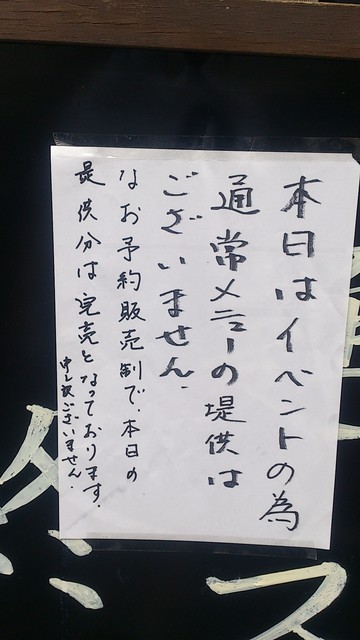 本日はイベントの為
通常メニューの提供は
ございません。
なお予約販売制で、本日の
提供分は完売となっております。
申し訳ございません。
ス